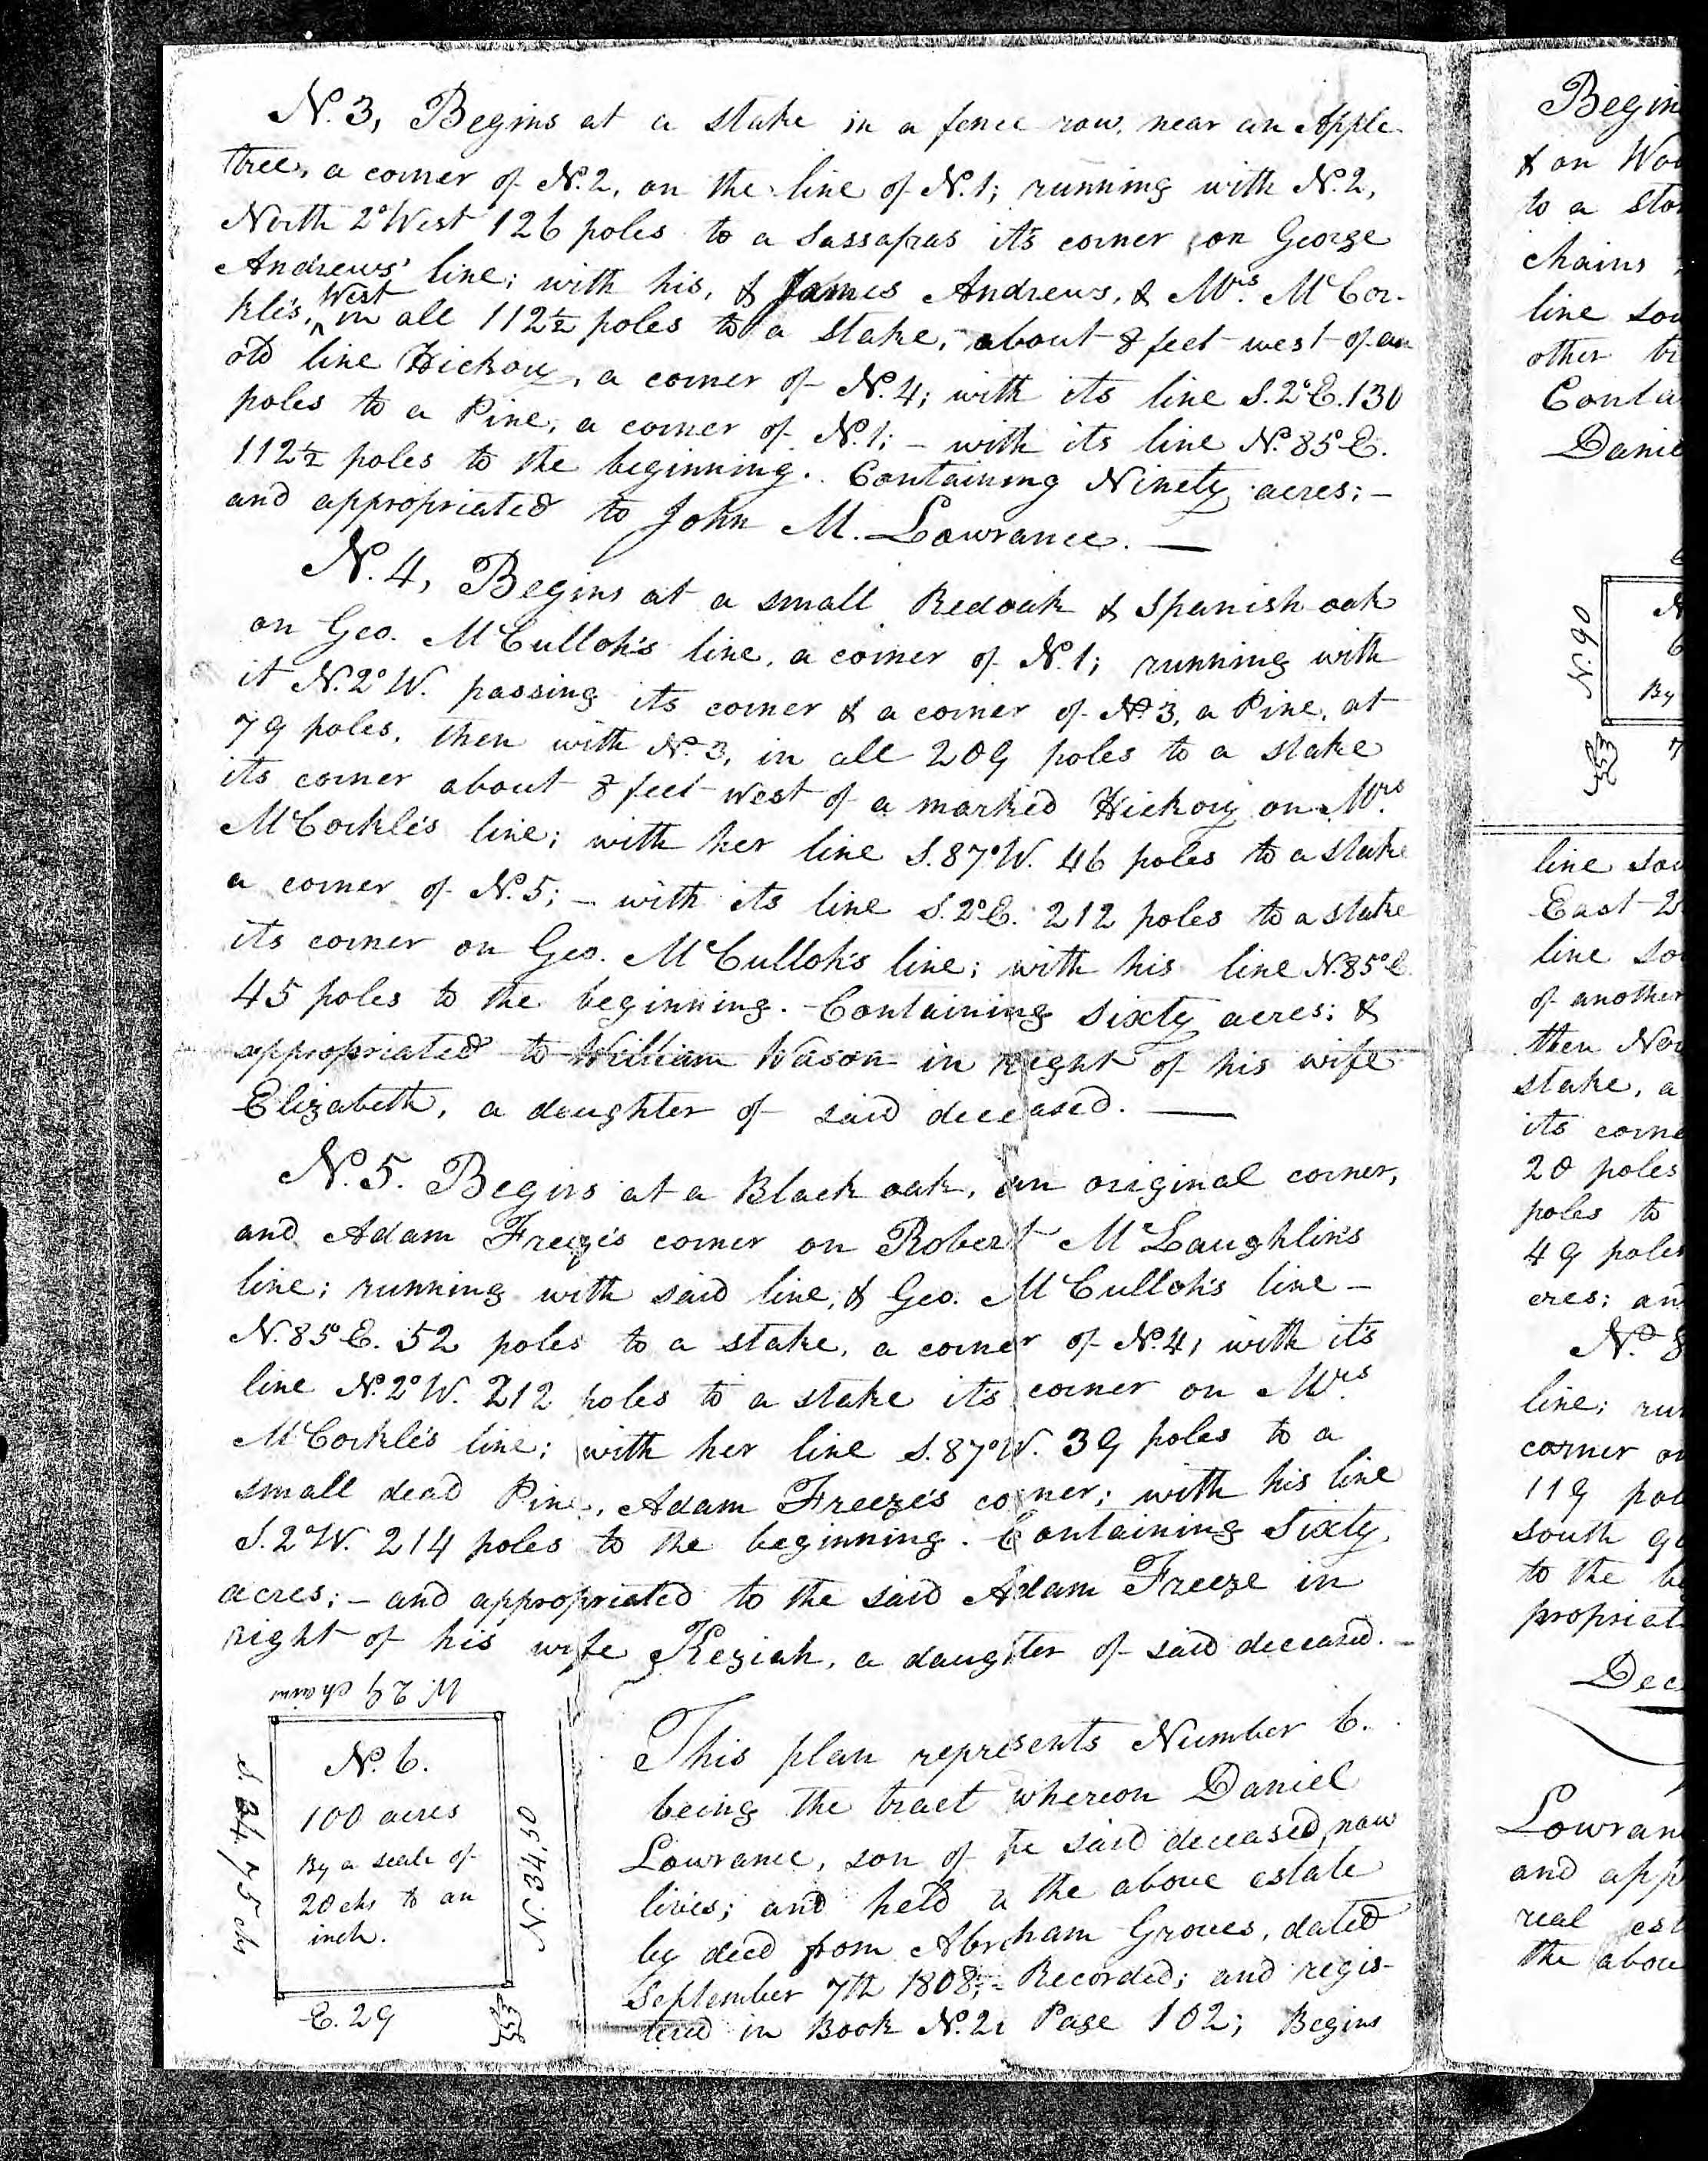 N.º 3, Begins at a stake in a fence row, near an Apple
tree, a corner of N.º 2, on the line of N.º 1; running with N.º 2,
North 2° West 126 poles to a Sassafras its corner on George
Andrews' line; with his, & James Andrews, & Mrs. McCor-
kle's, West in all 112½ poles to a stake, about 8 feet west of an
old line Hickory, a corner of N.º 4; with its line S. 2° E. 130
poles to a Pine, a corner of N.º 1; – with its line N. 85° E.
112½ poles to the beginning. Containing Ninety acres; –
and appropriated to John M. Lowrance. —
N.º 4, Begins at a small Redoak & Spanish oak
on Geo. McCulloh's line, a corner of N.º 1; running with
it N. 2° W. passing its corner & a corner of N.º 3, a Pine, at
79 poles, then with N.º 3, in all 209 poles to a stake
its corner about 8 feet west of a marked Hickory on Mrs.
McCorkle's line; with her line S. 87° W. 46 poles to a stake
a corner of N.º 5; – with its line S. 2° E. 212 poles to a stake
its corner on Geo. McCulloh's line; with his line N. 85° E
45 poles to the beginning. Containing Sixty acres; &
appropriated to William Wason in right of his wife
Elizabeth, a daughter of said deceased. —
N.º 5. Begins at a Black oak, an original corner,
and Adam Freeze's corner on Robert McLaughlin's
line; running with said line, & Geo. McCulloh's line –
N. 85° E. 52 poles to a stake, a corner of N.º 4; with its
line N. 2° W. 212 poles to a stake its corner on Mrs.
McCorkle's line; with her line S. 87° W. 39 poles to a
small dead Pine, Adam Freeze's corner; with his line
S. 2° W. 214 poles to the beginning. Containing Sixty
acres; – and appropriated to the said Adam Freeze in
right of his wife Keziah, a daughter of said deceased. –
W. 29 chains
N.º 6.
100 acres
By a scale of
20 chs to an
inch.
S. 34,75 chs
N. 34,50
E. 29
This plan represents Number 6.
being the tract whereon Daniel
Lowrance, son of the said deceased, now
lives; and held a the above estate
by deed from Abraham Groves, dated
September 7th 1808; – Recorded; and regis-
tered in Book N.º 21 Page 102; Begins
Begin
& on
to a
chains
line
other
Conta
Danie
N. 90
By
line
East 2
line
of another
then
stake, a
its corne
20 poles
poles to
49 poles
cres; an
N.º 8
line; run
corner on
119 pol
south
to the be
propriat
Dec
Lowran
and app
real est
the above